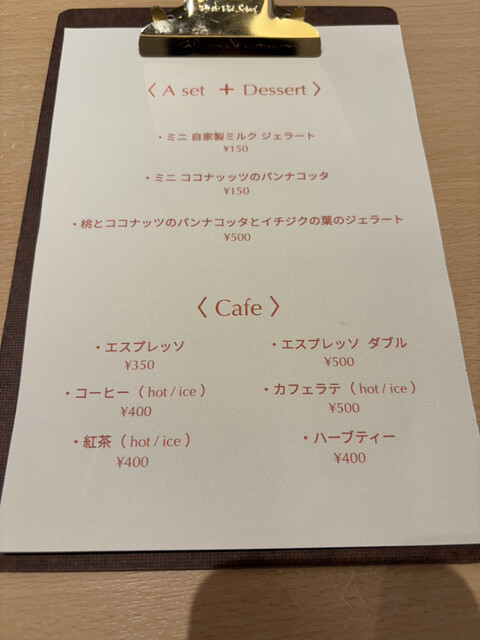 〈 A set ＋ Dessert 〉
・ミニ 自家製ミルク ジェラート
¥150
・ミニ ココナッッツのパンナコッタ
¥150
・桃とココナッツのパンナコッタとイチジクの葉のジェラート
¥500
〈 Cafe 〉
・エスプレッソ
¥350
・エスプレッソ ダブル
¥500
・コーヒー（ hot / ice ）
¥400
・カフェラテ（ hot / ice ）
¥500
・紅茶（ hot / ice ）
¥400
・ハーブティー
¥400